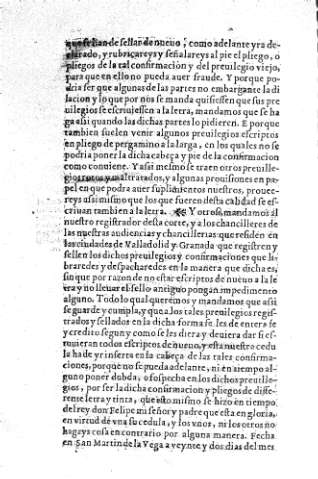 que se han de sellar de nueuo, como adelante yra de-
clarado, y rubricareys y señalareys al pie el pliego, o
pliegos de la tal confirmacion y del preuilegio viejo,
para que en ello no pueda auer fraude. Y porque po-
dria ser que algunas de las partes no embargante la di
lacion y lo que por nos se manda quisiessen que sus pre
uilegios se escriuiessen a la letra, mandamos que se ha
ga assi quando las dichas partes lo pidieren. E porque
tambien suelen venir algunos preuilegios escriptos
en pliego de pergamino a la larga, en los quales no se
podria poner la dicha cabeça y pie de la confirmacion
como conuiene. Y assi mesmo se traen otros preuile-
gios rotos y maltratados, y algunas prouisiones en pa-
pel en que podra auer suplimientos nuestros, prouee-
reys assi mismo que los que fueren desta calidad se es-
criuan tambien a la letra. Y otrosi mandamos al
nuestro registrador desta corte, y a los chancilleres de
las nuestras audiencias y chancillerias que residen en
las ciudades de Valladolid y Granada que registren y
sellen los dichos preuilegios y confirmaciones que li-
braredes y despacharedes en la manera que dicha es,
sin que por razon de no estar escriptos de nueuo a la le
tra y no lleuar el sello antiguo pongan impedimento
alguno. Todo lo qual queremos y mandamos que assi
se guarde y cumpla, y que a los tales preuilegios regis-
trados y sellados en la dicha forma se les de entera fe
y credito segun y como se les diera y deuiera dar si es-
tuuieran todos escriptos de nueuo, y esta nuestra cedu
la ha de yr inserta en la cabeça de las tales confirma-
ciones, porque no se pueda adelante, ni en tiempo al-
guno poner dubda, o sospecha en los dichos preuile-
gios, por ser la dicha confirmacion y pliegos de diffe-
rente letra y tinta, que esto mismo se hizo en tiempo
del rey don Felipe mi señor y padre que esta en gloria,
en virtud de vna su cedula, y los vnos, ni los otros no
hagays cosa en contrario por alguna manera. Fecha
en San Martin de la Vega a veynte y dos dias del mes